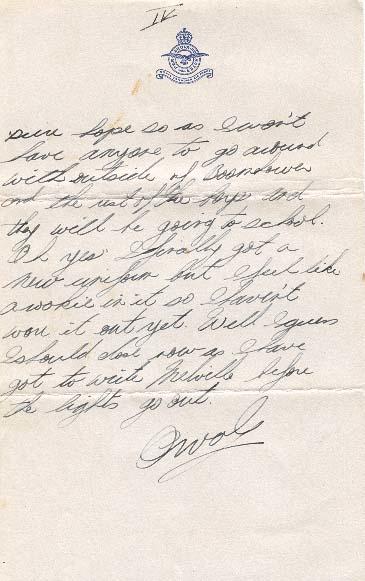 IV
sure hope so as I won't
have anyone to go around
with outside of
and the rest of the boys and
they will be going to school.
Oh yes. I finally got a
new uniform but I feel like
a rookie in it so I haven't
worn it out yet. Well I guess
I should close now as I have
got to write Melville before
the lights go out.